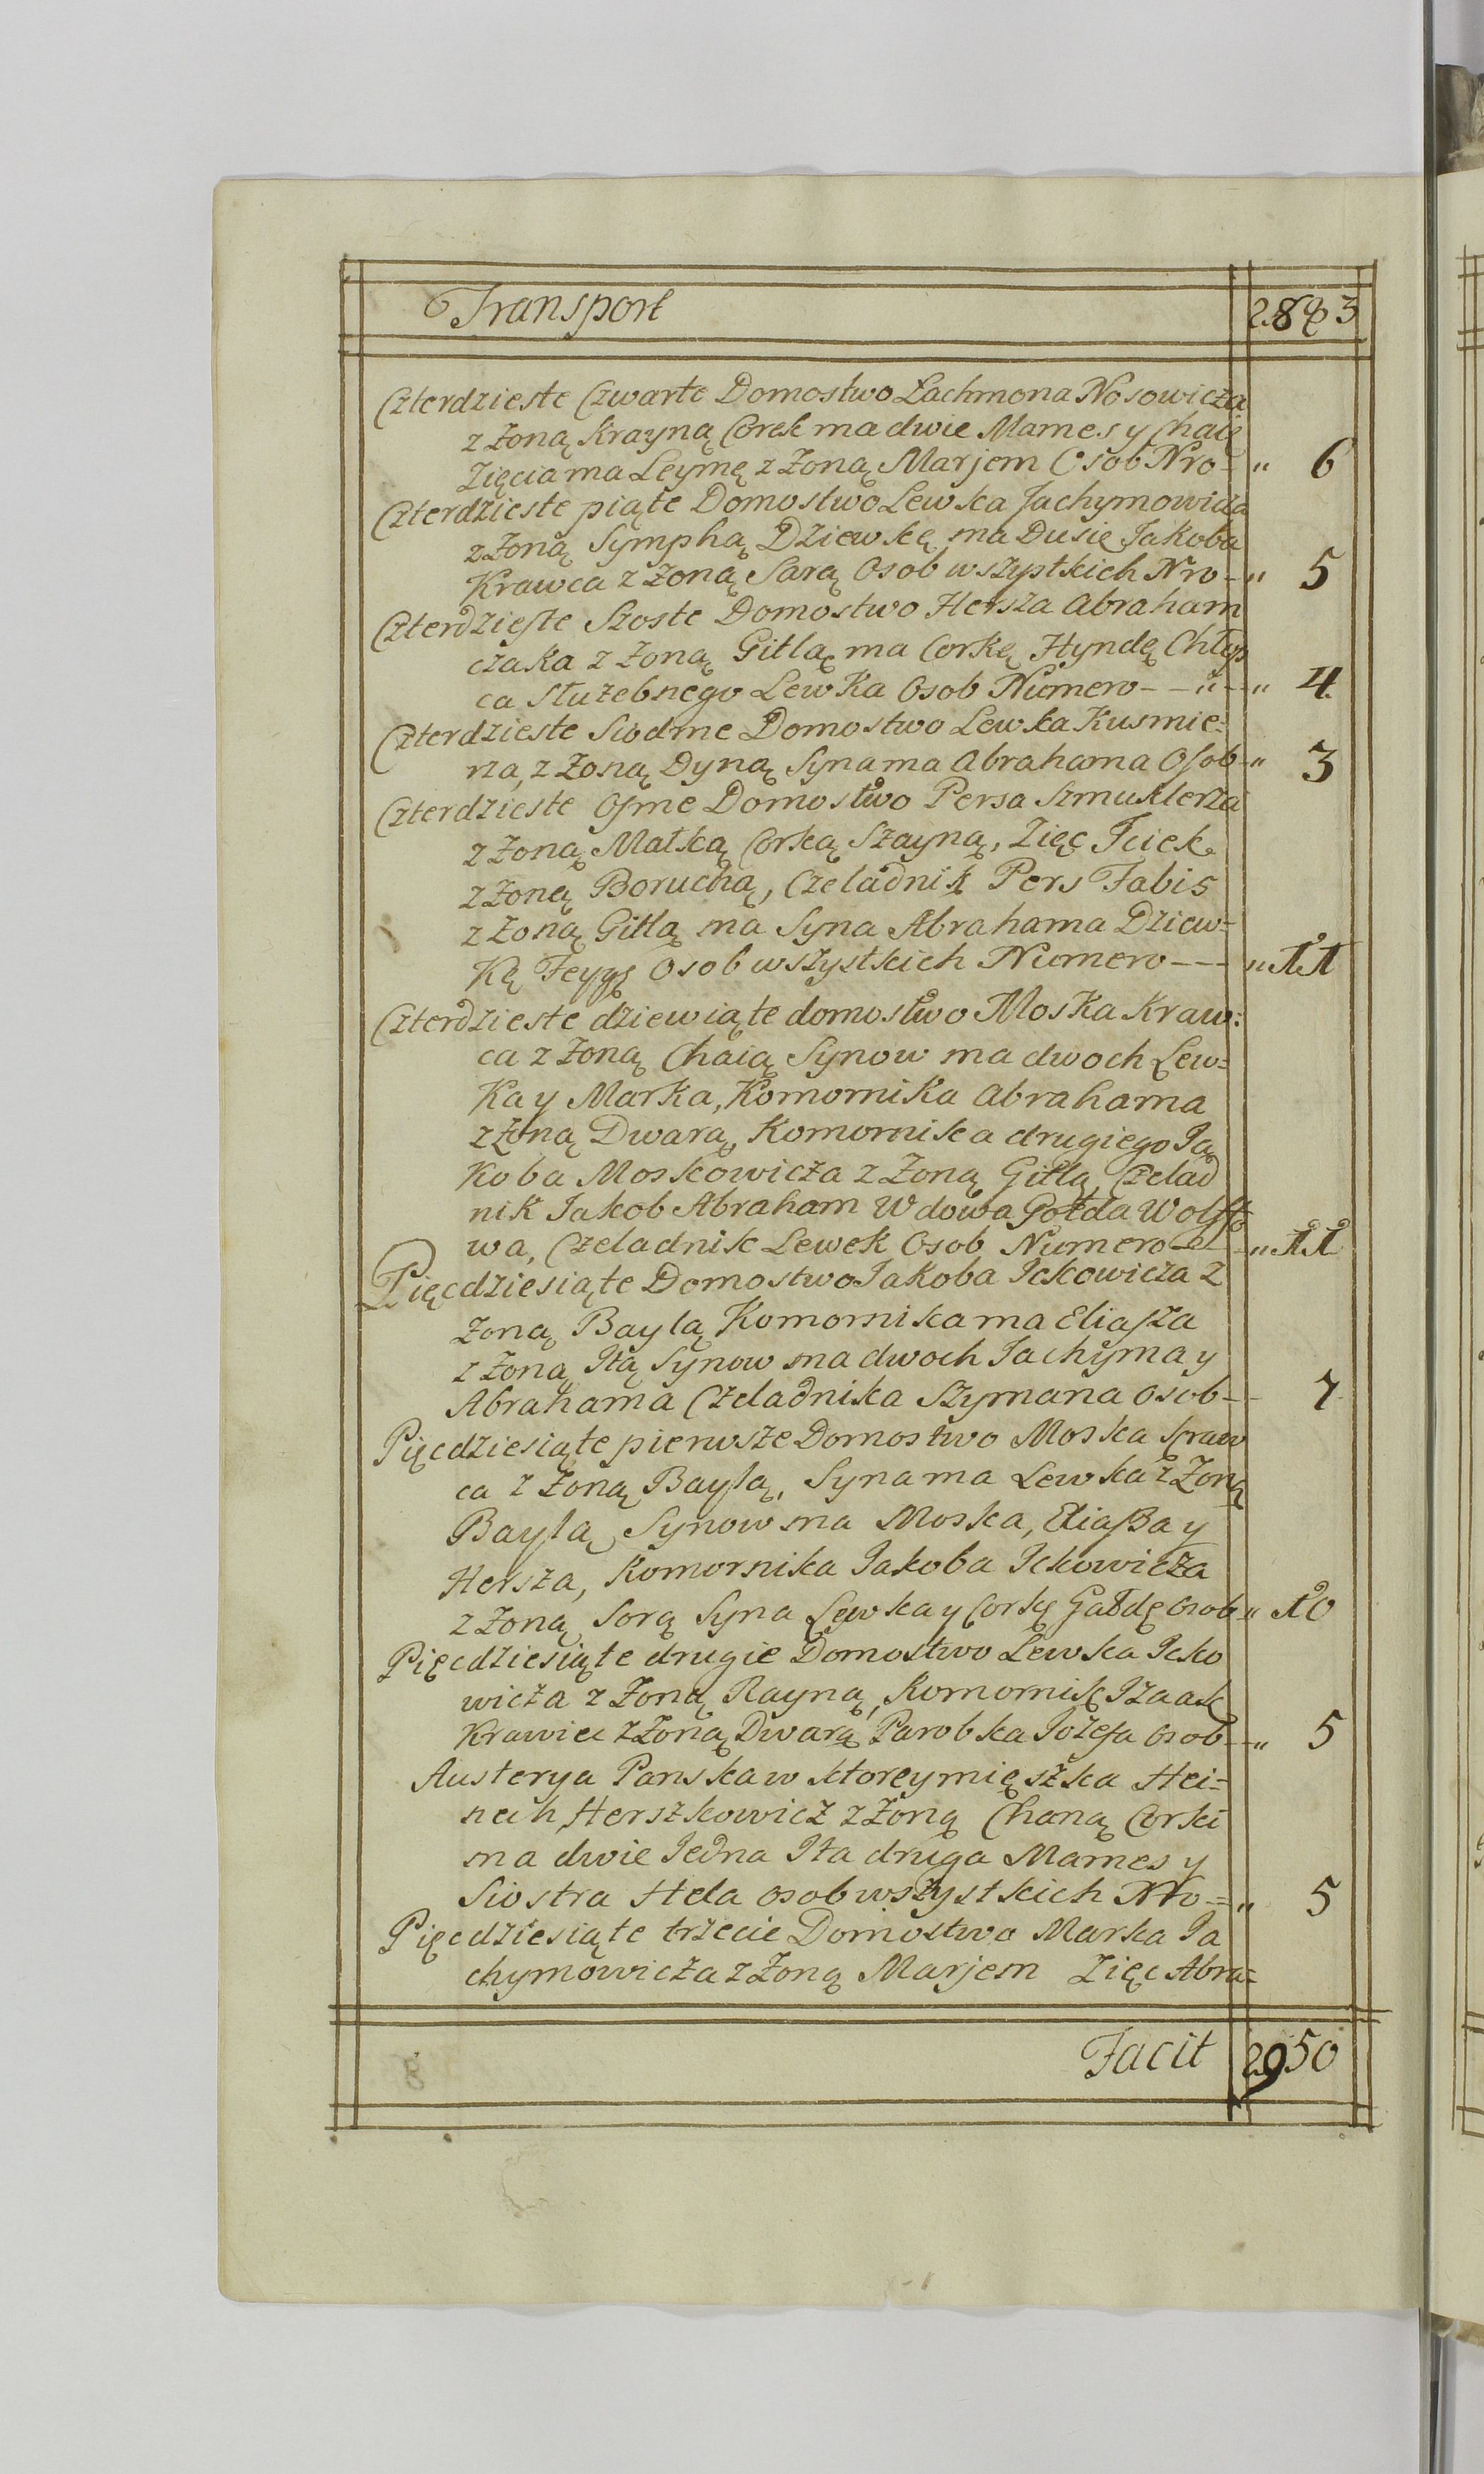 Transport 2883
Czterdzieste Czwarte Domostwo Lachmona Nosowicza
z Zoną Krayną Corek ma dwie Mames y Chaię
Zięcia ma Leymę z Zoną Marjem Osob Nro - " 6
Czterdzieste piąte Domostwo Lewka Jachymowicza
z Zoną Symphą Dziewkę ma Dusię Jakoba
Krawca z Zoną Sarą Osob wszystkich Nro - " 5
Czterdzieste Szoste Domostwo Hersza Abraham
czaka z Zoną Gitlą ma Corkę Hyndę Chłop
ca Służebnego Lewka Osob Numero - - " - " 4
Czterdzieste Siodme Domostwo Lewka Kusmie=
rza, z Zoną Dyną Syna ma Abrahama Osob - " 3
Czterdzieste Osme Domostwo Persa Szmuklerza
z Zoną Matką Corką Szayną, Zięc Iciek
z Zoną Boruchą, Czeladnik Pers Fabis
z Zoną Gitlą ma Syna Abrahama Dziew=
Kę Feygę Osob wszystkich Numero - - - " 11
Czterdzieste dziewiąte domostwo Moska Kraw=
ca z Zoną Chaią Synow ma dwoch Lew=
Ka y Marka, Komornika Abrahama
z Zoną Dwarą, Komornika drugiego Ja
Koba Moskowicza z Zoną Gitlą, Czelad
nik Jakob Abraham Wdowa Gołda Wolffo
wa, Czeladnik Lewek Osob Numero - - " 11
Pięcdziesiąte Domostwo Jakoba Ickowicza z
Zoną Baylą Komornika ma Eliasza
z Zoną Itą Synow ma dwoch Jachyma y
Abrahama Czeladnika Szymana Osob - - 7
Pięcdziesiąte pierwsze Domostwo Moska Kraw
ca z Zoną Baylą, Syna ma Lewka z Zoną
Baylą Synow ma Moska, Eliaßa y
Hersza, Komornika Jakoba Ickowicza
z Zoną Sorą Syna Lewka y Corkę Gałdę Osob " 10
Pięcdziesiąte drugie Domostwo Lewka Icko
wicza z Zoną Rayną, Komornik Izaak
Krawiec z Zoną Dwarą Parobka Jozefa Osob - " 5
Austerya Panska w ktorey mięszka Hei=
nech Herszkowicz z Zoną Chaną Corki
ma dwie Jedna Ita druga Mames y
Siostra Hela osob wszystkich Nro - " 5
Pięcdziesiąte trzecie Domostwo Marka Ja
chymowicza z Zoną Marjem Zięc Abra=
Facit 2950